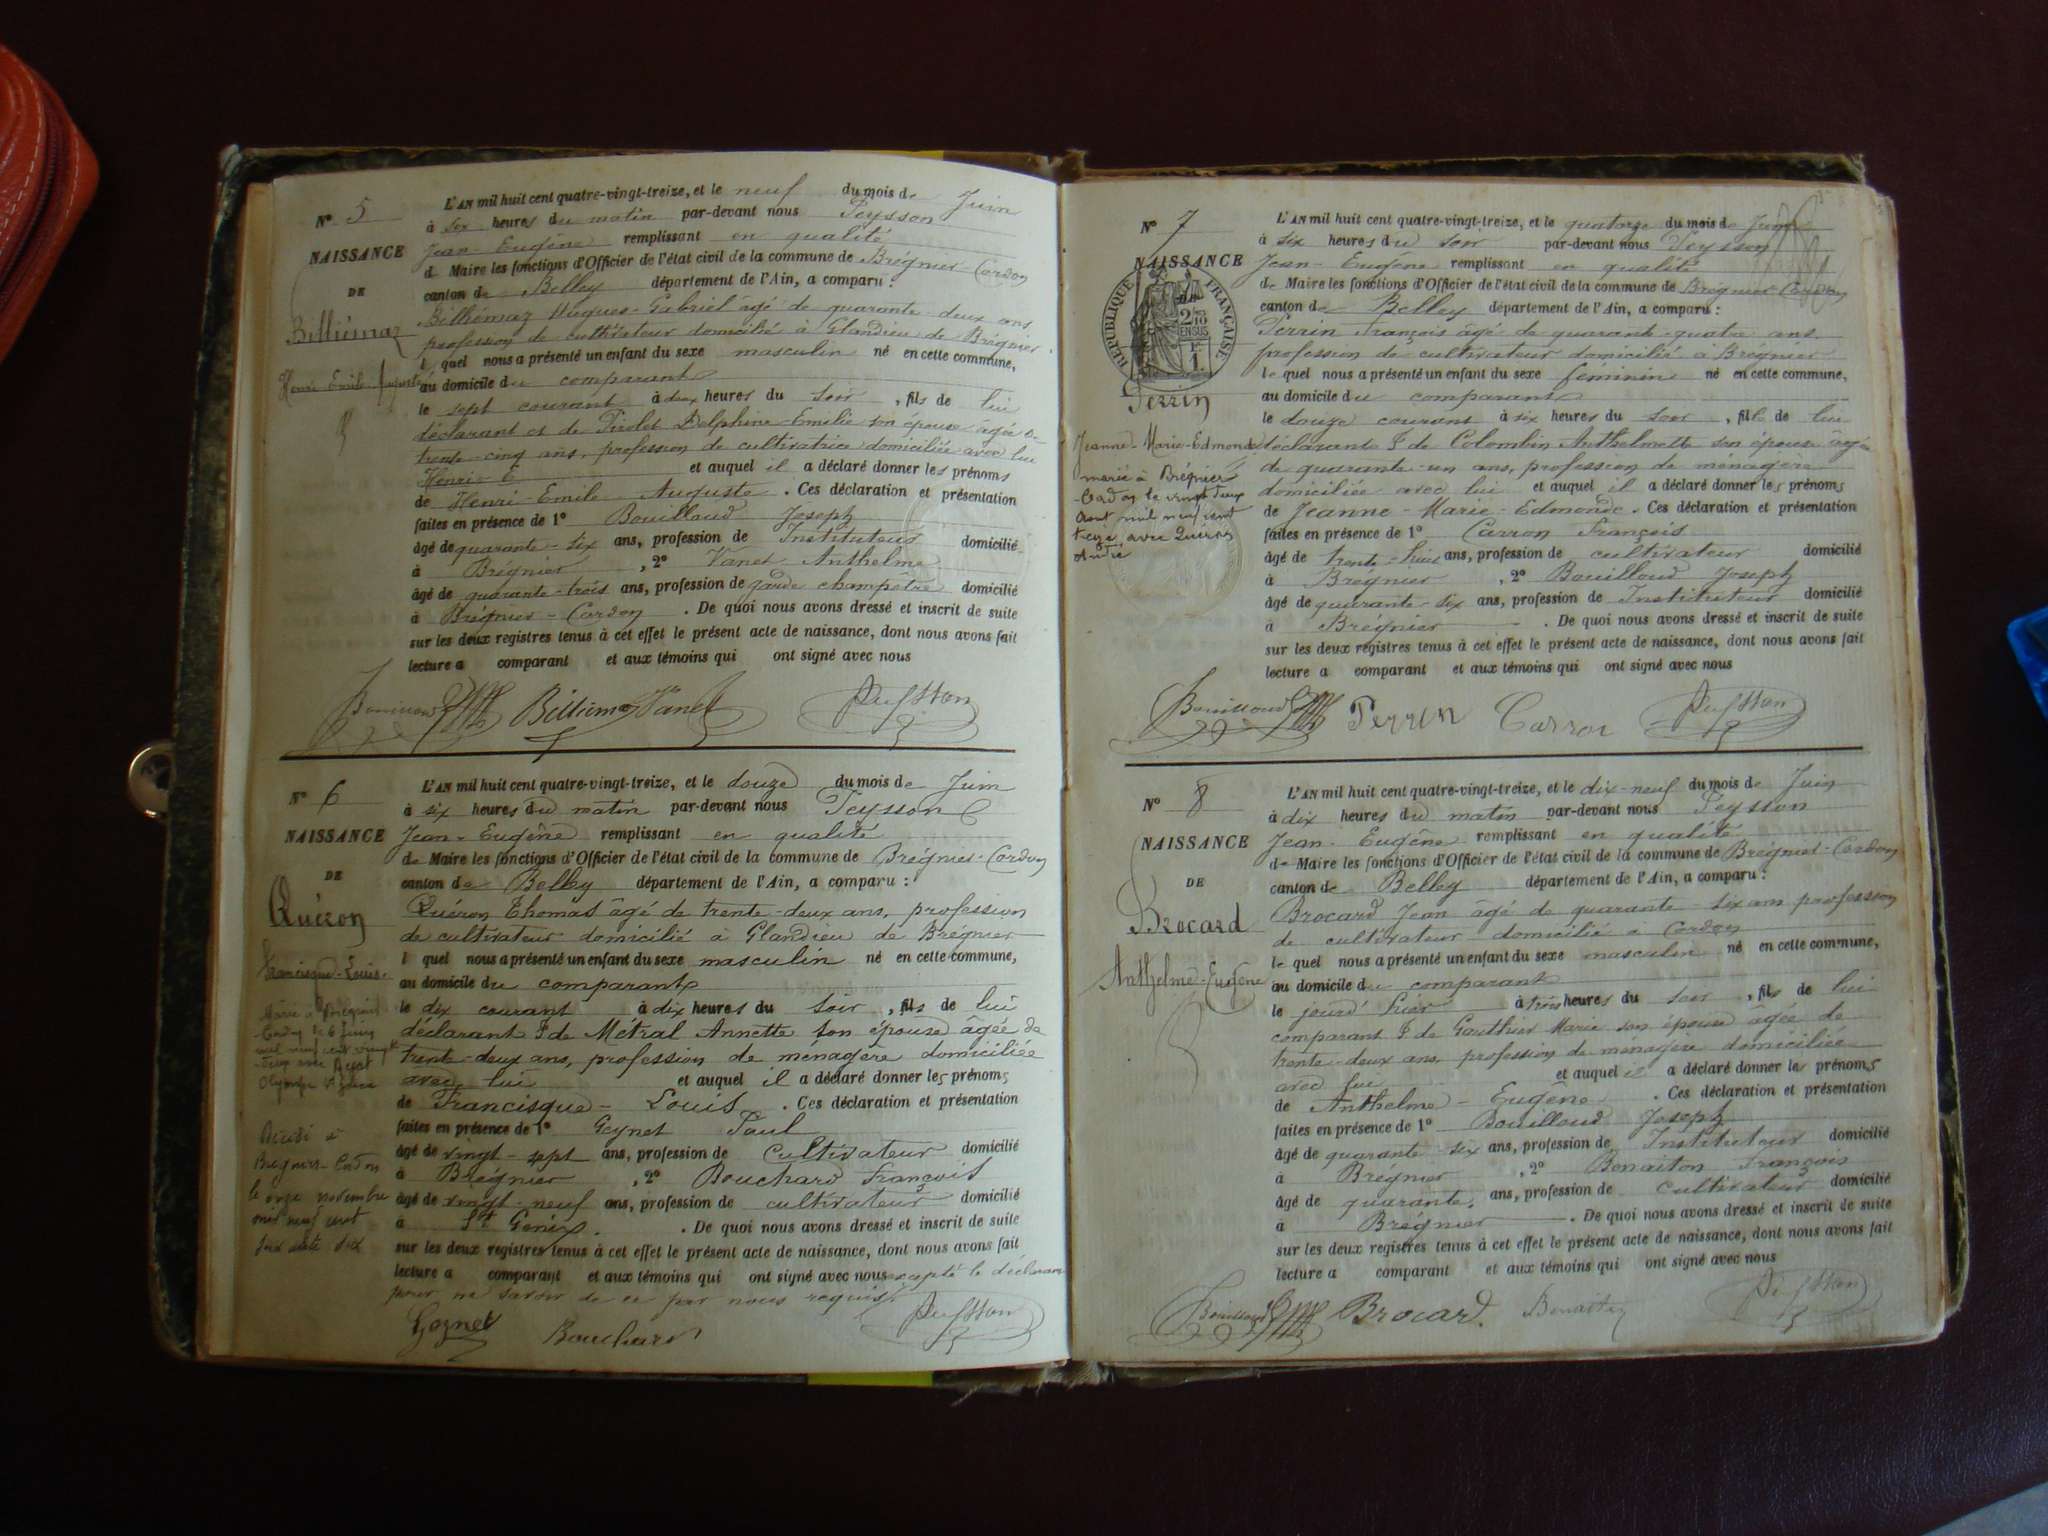 N° 5
NAISSANCE
DE
Billiémaz
Henri Emile Auguste
L'AN mil huit cent quatre-vingt-treize, et le neuf du mois de Juin
à six heures du matin par-devant nous Peysson
Jean-Eugène remplissant en qualité
de Maire les fonctions d'Officier de l'état civil de la commune de Brégnier-Cordon
canton de Belley département de l'Ain, a comparu :
Billiémaz Hugues-Gabriel âgé de quarante-deux ans,
profession de cultivateur domicilié à Glandieu de Brégnier
l quel nous a présenté un enfant du sexe masculin né en cette commune,
au domicile du comparant
le sept courant à deux heures du soir, fils de lui
déclarant et de Pirolet Delphine Emilie son épouse âgée de
trente-cinq ans, profession de cultivatrice domiciliée avec lui
Henri-E et auquel il a déclaré donner les prénoms
de Henri-Emile Auguste. Ces déclaration et présentation
faites en présence de 1° Bouilloud Joseph
âgé de quarante-six ans, profession de Instituteur domicilié
à Brégnier, 2° Vanet Anthelme
âgé de quarante-trois ans, profession de garde champêtre domicilié
à Brégnier-Cordon. De quoi nous avons dressé et inscrit de suite
sur les deux registres tenus à cet effet le présent acte de naissance, dont nous avons fait
lecture a comparant et aux témoins qui ont signé avec nous
Bouilloud Billiémaz Vanet Peysson
N° 6
NAISSANCE
DE
Quéron
Francisque-Louis
Marié à Brégnier
Cordon le 6 Juin
mil neuf cent vingt
deux avec
Olympe
Décédé à
Brégnier-Cordon
le onze novembre
mil neuf cent
soixante dix
L'AN mil huit cent quatre-vingt-treize, et le douze du mois de Juin
à six heures du matin par-devant nous Peysson
Jean-Eugène remplissant en qualité
de Maire les fonctions d'Officier de l'état civil de la commune de Brégnier-Cordon
canton de Belley département de l'Ain, a comparu :
Quéron Thomas âgé de trente-deux ans, profession
de cultivateur domicilié à Glandieu de Brégnier
l quel nous a présenté un enfant du sexe masculin né en cette commune,
au domicile du comparant
le dix courant à dix heures du soir, fils de lui
déclarant & de Métral Annette son épouse âgée de
trente-deux ans, profession de ménagère domiciliée
avec lui et auquel il a déclaré donner les prénoms
de Francisque-Louis. Ces déclaration et présentation
faites en présence de 1° Goynet Paul
âgé de vingt-sept ans, profession de Cultivateur domicilié
à Brégnier, 2° Bouchard François
âgé de vingt-neuf ans, profession de cultivateur domicilié
à St Genix. De quoi nous avons dressé et inscrit de suite
sur les deux registres tenus à cet effet le présent acte de naissance, dont nous avons fait
lecture a comparant et aux témoins qui ont signé avec nous excepté le déclarant
pour ne savoir de ce par nous requis.
Goynet Bouchard Peysson
N° 7
NAISSANCE
RÉPUBLIQUE FRANÇAISE
2/10 EN SUS
1 F.
Perrin
Jeanne-Marie-Edmonde
marié à Brégnier
Cordon le vingt deux
Aout mil neuf cent
treize avec Quéron
André
L'AN mil huit cent quatre-vingt-treize, et le quatorze du mois de Juin
à six heures du soir par-devant nous Peysson
Jean-Eugène remplissant en qualité
de Maire les fonctions d'Officier de l'état civil de la commune de Brégnier-Cordon
canton de Belley département de l'Ain, a comparu :
Perrin François âgé de quarante-quatre ans
profession de cultivateur domicilié à Brégnier
le quel nous a présenté un enfant du sexe féminin né en cette commune,
au domicile du comparant
le douze courant à six heures du soir, fille de lui
déclarant & de Colombin Anthelmette son épouse âgée
de quarante-un ans, profession de ménagère
domiciliée avec lui et auquel il a déclaré donner les prénoms
de Jeanne-Marie-Edmonde. Ces déclaration et présentation
faites en présence de 1° Carron François
âgé de trente-huit ans, profession de cultivateur domicilié
à Brégnier, 2° Bouilloud Joseph
âgé de quarante-six ans, profession de Instituteur domicilié
à Brégnier. De quoi nous avons dressé et inscrit de suite
sur les deux registres tenus à cet effet le présent acte de naissance, dont nous avons fait
lecture a comparant et aux témoins qui ont signé avec nous
Bouilloud Perrin Carron Peysson
N° 8
NAISSANCE
DE
Brocard
Anthelme-Eugène
L'AN mil huit cent quatre-vingt-treize, et le dix-neuf du mois de Juin
à dix heures du matin par-devant nous Peysson
Jean-Eugène remplissant en qualité
de Maire les fonctions d'Officier de l'état civil de la commune de Brégnier-Cordon
canton de Belley département de l'Ain, a comparu :
Brocard Jean âgé de quarante-six ans profession
de cultivateur domicilié à Cordon
le quel nous a présenté un enfant du sexe masculin né en cette commune,
au domicile du comparant
le jourd'hier à trois heures du soir, fils de lui
comparant & de Gauthier Marie son épouse âgée de
trente-deux ans, profession de ménagère domiciliée
avec lui et auquel il a déclaré donner les prénoms
de Anthelme-Eugène. Ces déclaration et présentation
faites en présence de 1° Bouilloud Joseph
âgé de quarante-six ans, profession de Instituteur domicilié
à Brégnier, 2° Bonaiton François
âgé de quarante ans, profession de cultivateur domicilié
à Brégnier. De quoi nous avons dressé et inscrit de suite
sur les deux registres tenus à cet effet le présent acte de naissance, dont nous avons fait
lecture a comparant et aux témoins qui ont signé avec nous
Bouilloud Brocard. Bonaiton Peysson